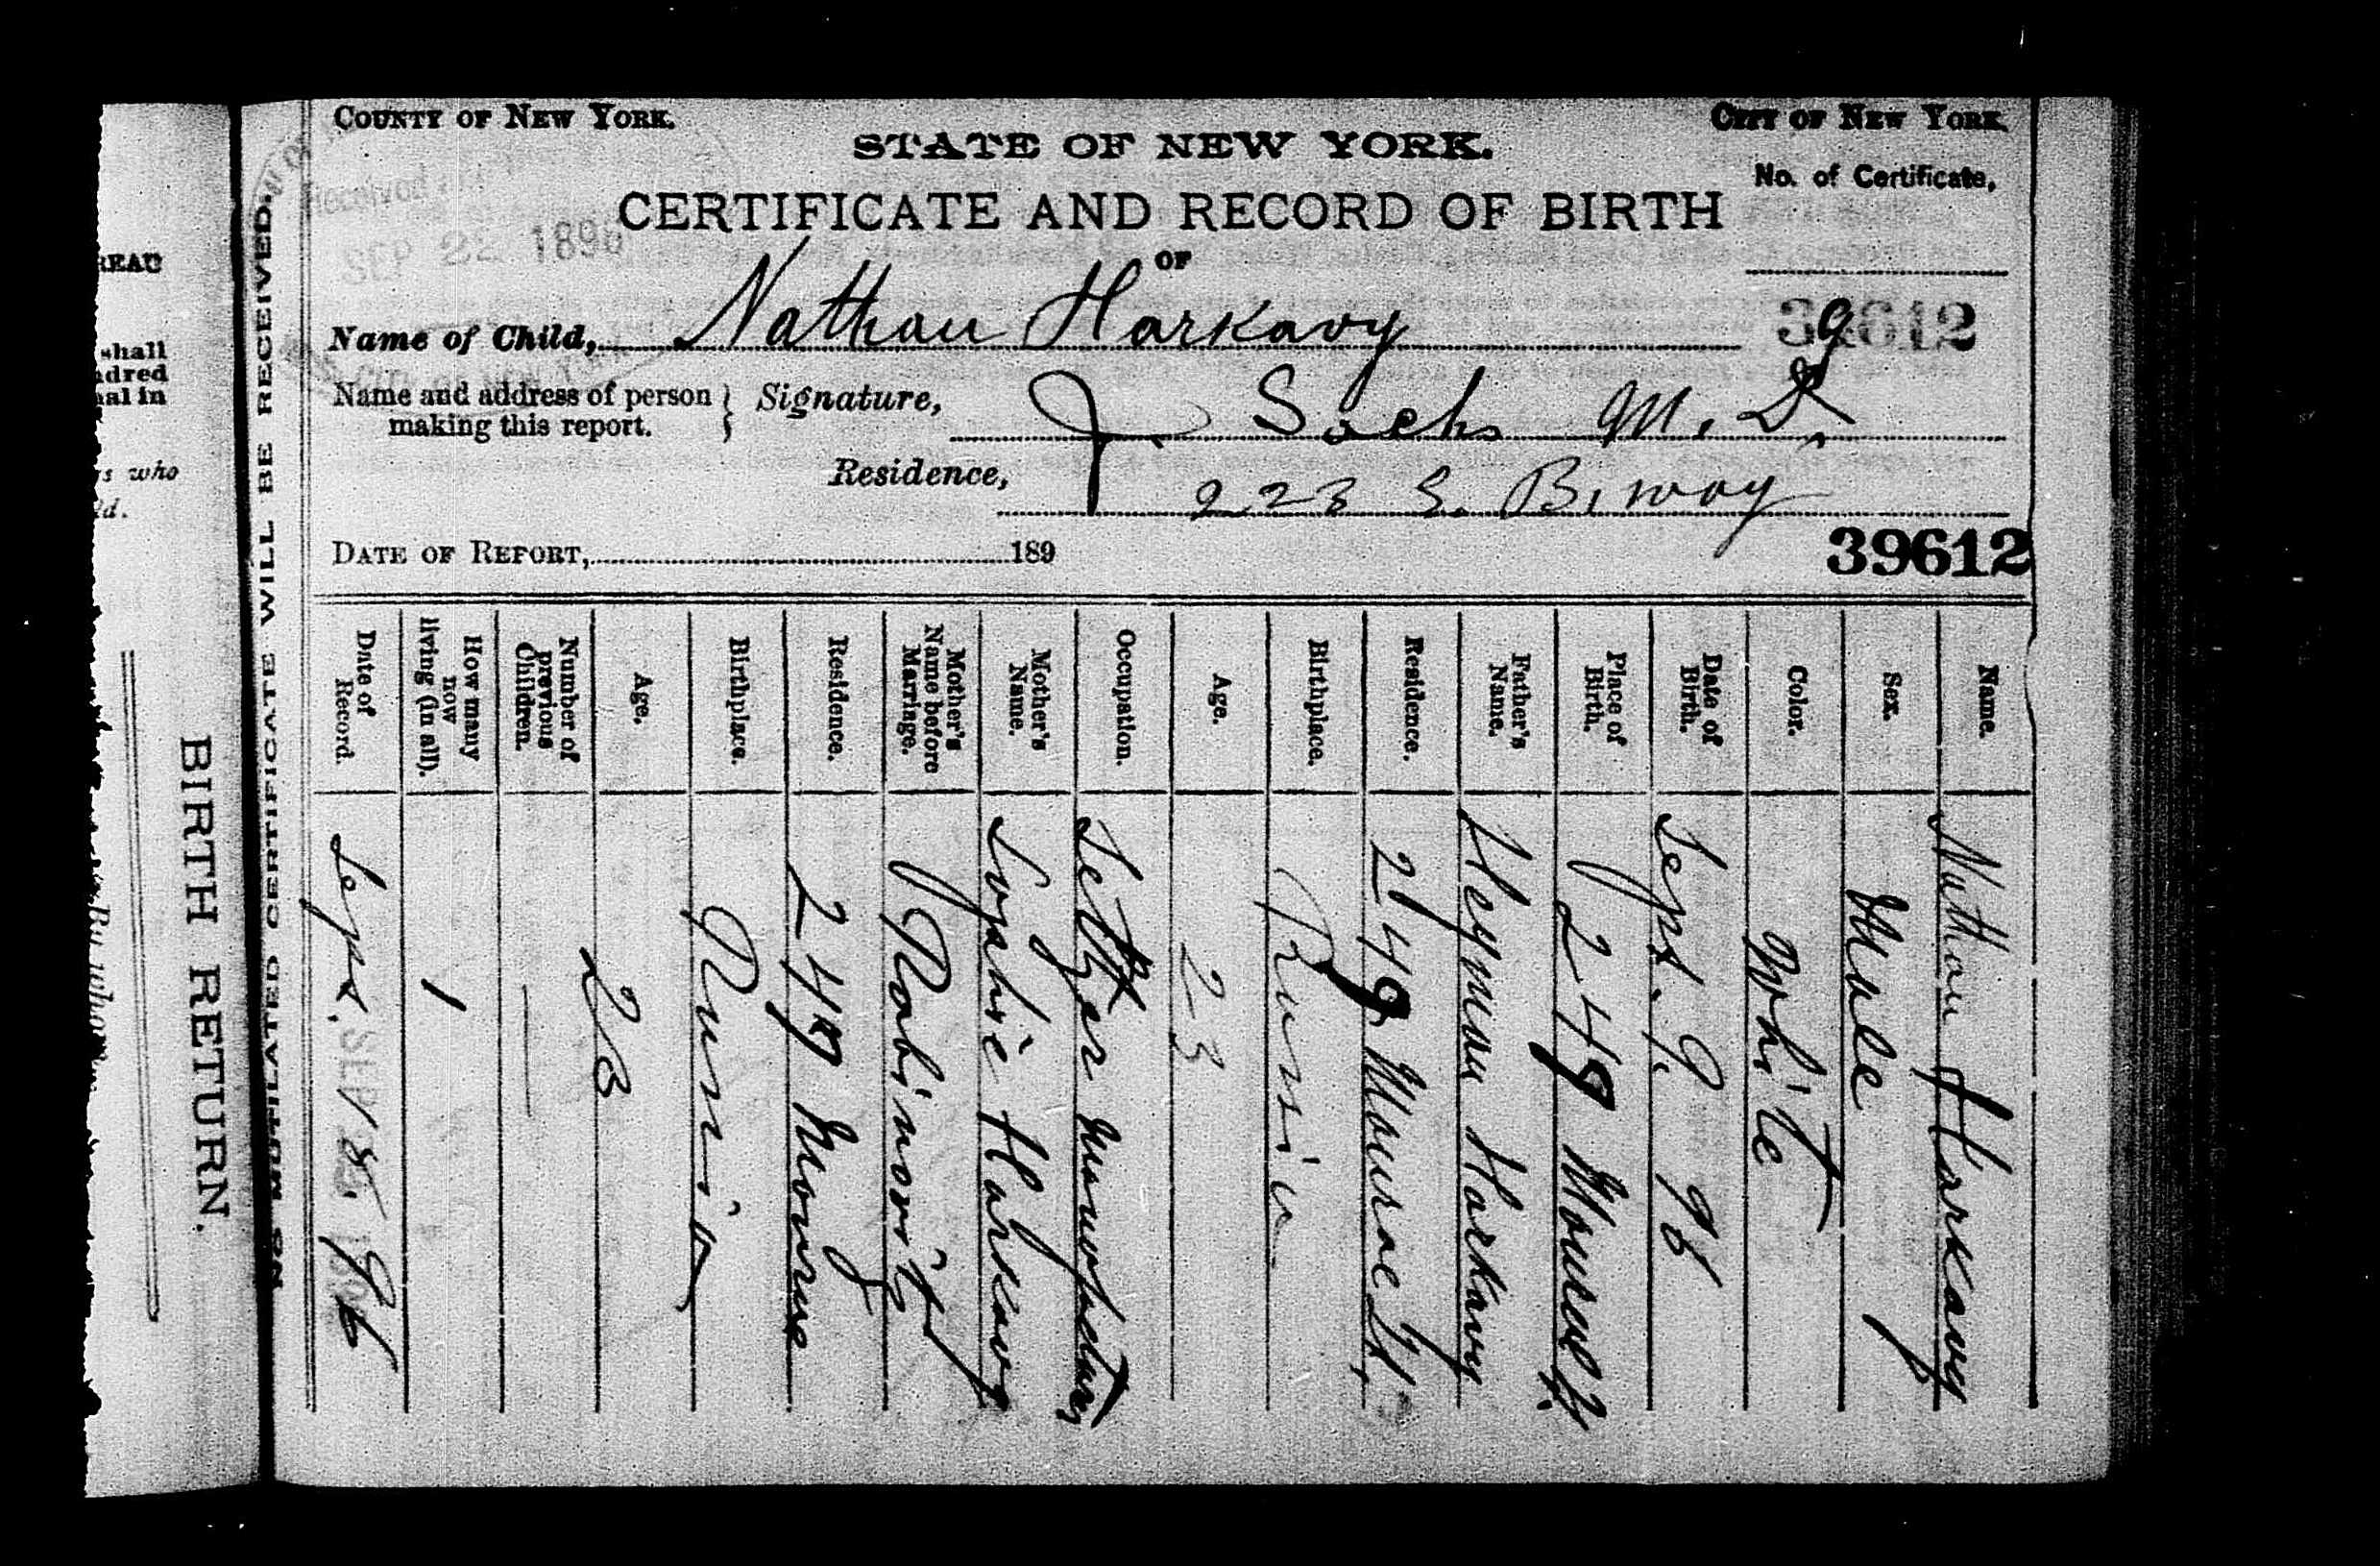 COUNTY OF NEW YORK.
CITY OF NEW YORK.
STATE OF NEW YORK.
No. of Certificate,
CERTIFICATE AND RECORD OF BIRTH
OF
Received
SEP 22 1896
39612
Name of Child, Nathan Harkavy
Name and address of person making this report. } Signature, J. Sachs M.D.
Residence, 223 E. B.way
DATE OF REPORT, 189
39612
Name. Nathan Harkavy
Sex. Male
Color. White
Date of Birth. Sept. 9. 96
Place of Birth. 249 Monroe St.
Father's Name. Heyman Harkavy
Residence. 249 Monroe St.
Birthplace. Russia
Age. 23
Occupation.
Mother's Name. Sophie Harkavy
Mother's Name before Marriage. Rabinovitz
Residence. 249 Monroe
Birthplace. Russia
Age. 23
Number of previous Children. —
How many now living (in all). 1
Date of Record. Sept. 18 96
NO MUTILATED CERTIFICATE WILL BE RECEIVED.
BIRTH RETURN.
REAU
shall
ndred
al in
who
d.
By whom